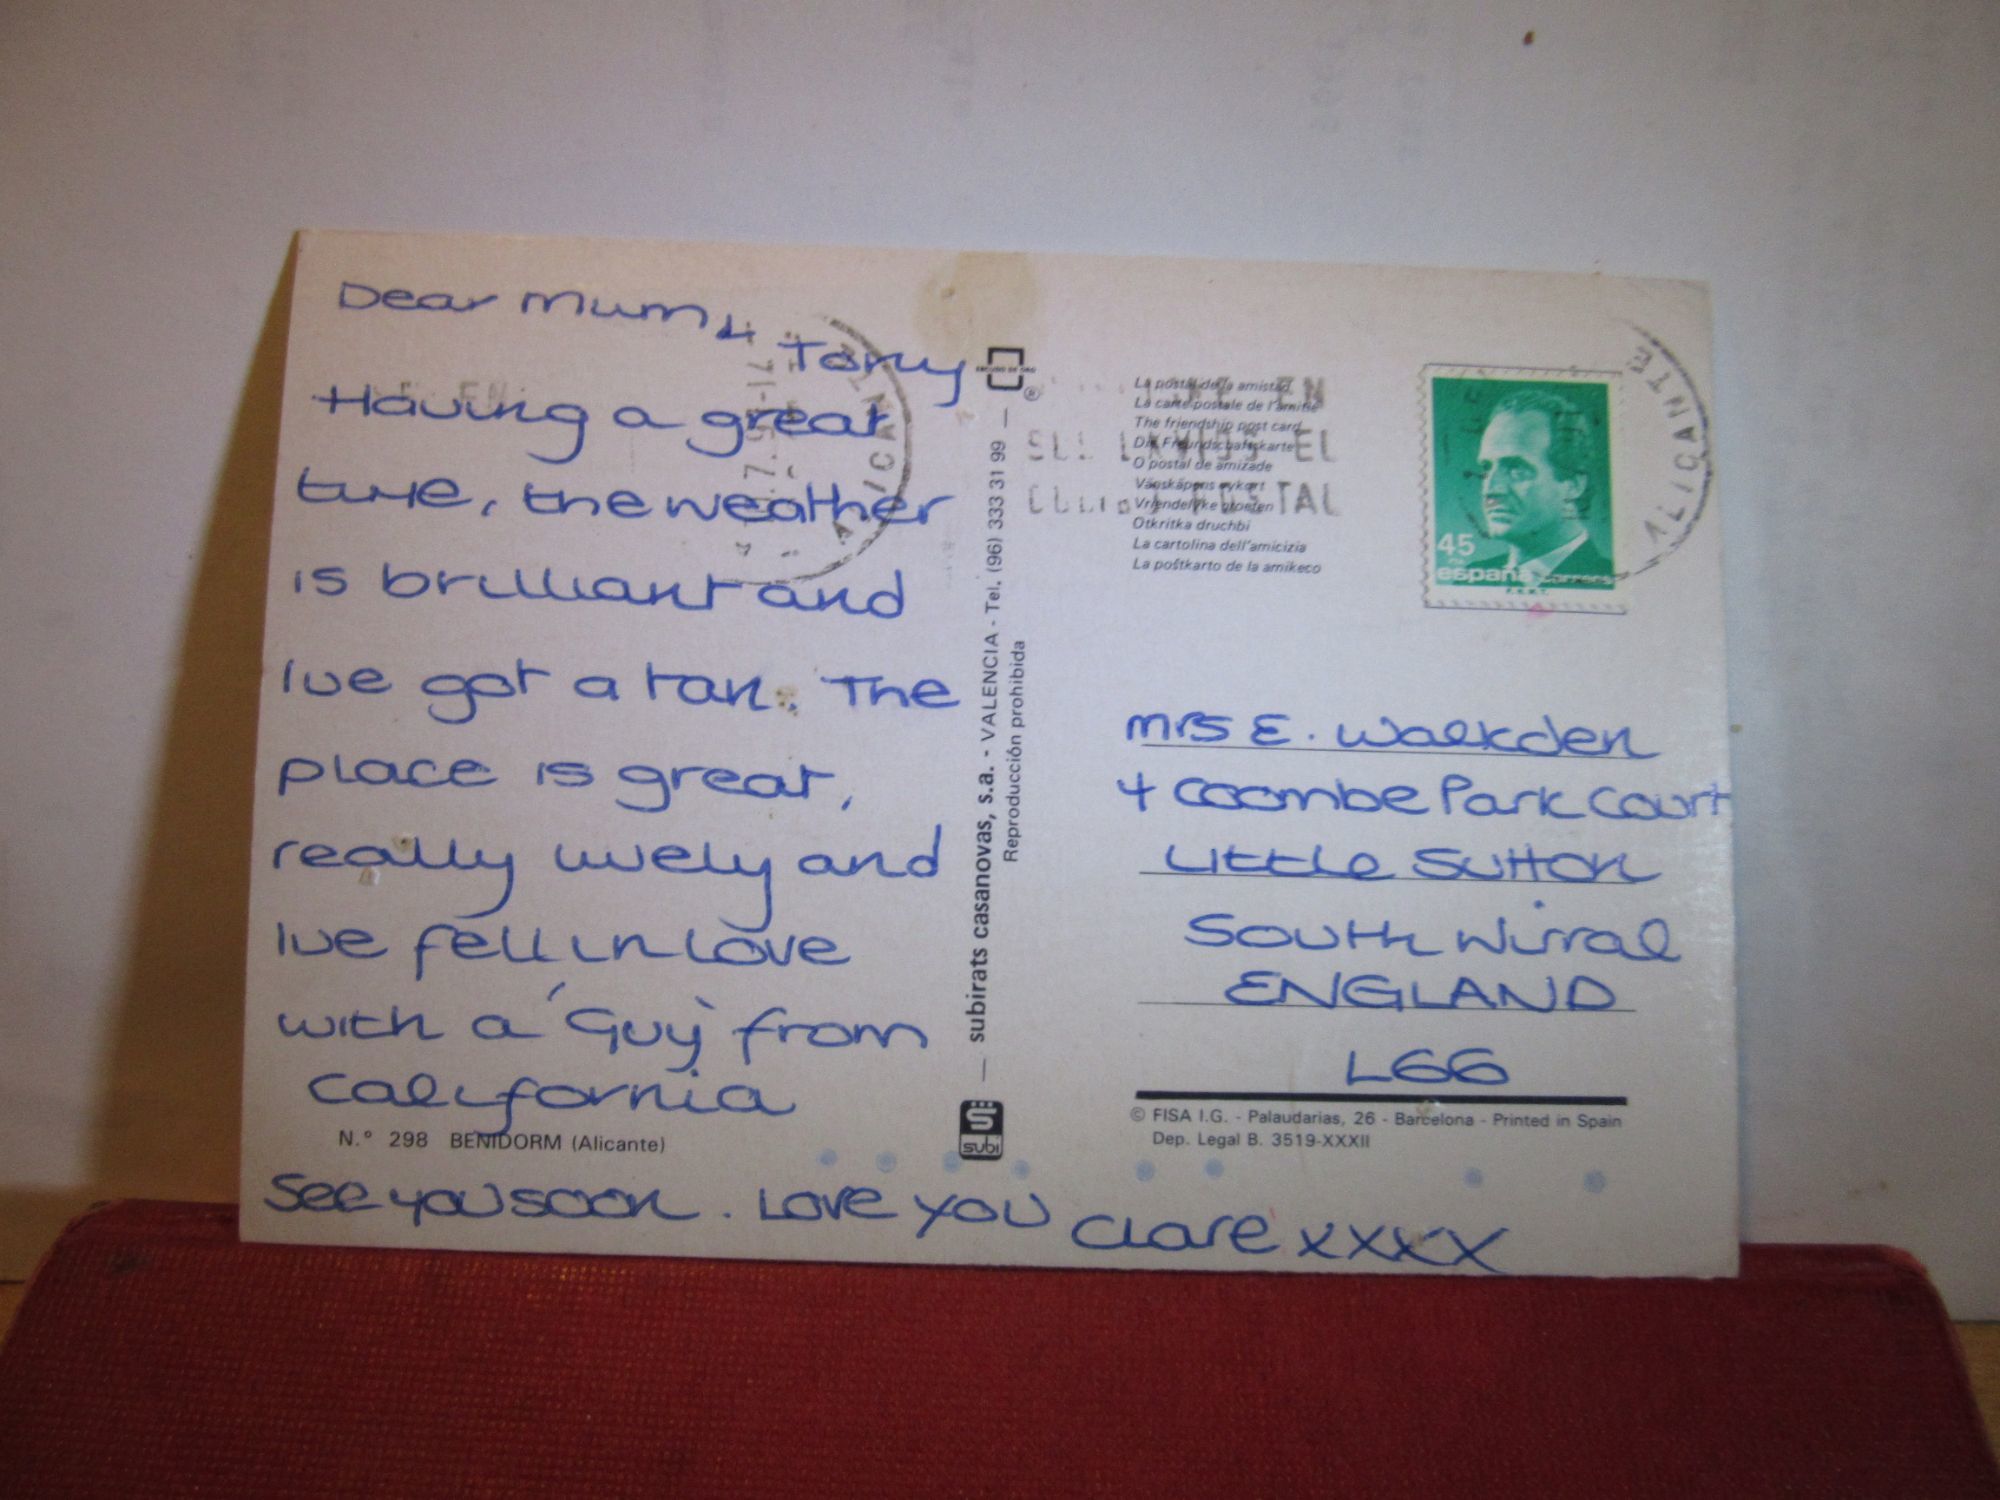 Dear Mum &
Tony
Having a great
time, the weather
is brilliant and
Ive got a tan. The
place is great,
really lively and
Ive fell in love
with a 'Guy' from
California
N.º 298 BENIDORM (Alicante)
See you soon. Love You Clare xxxx
subirats casanovas, s.a. - VALENCIA - Tel. (96) 333 31 99
Reproducción prohibida
subi
La postal de la amistad
La carte postale de l'amitié
The friendship post card
Die Freundschaftskarte
O postal de amizade
Vänskäpens vykort
Vriendelijke groeten
Otkritka druchbi
La cartolina dell'amicizia
La poŝtkarto de la amikeco
EN
EL
POSTAL
ALICANTE
45
españa correos
F.N.M.T.
Mrs E. Walkden
4 Coombe Park Court
Little Sutton
South Wirral
ENGLAND
L66
© FISA I.G. - Palaudarias, 26 - Barcelona - Printed in Spain
Dep. Legal B. 3519-XXXII